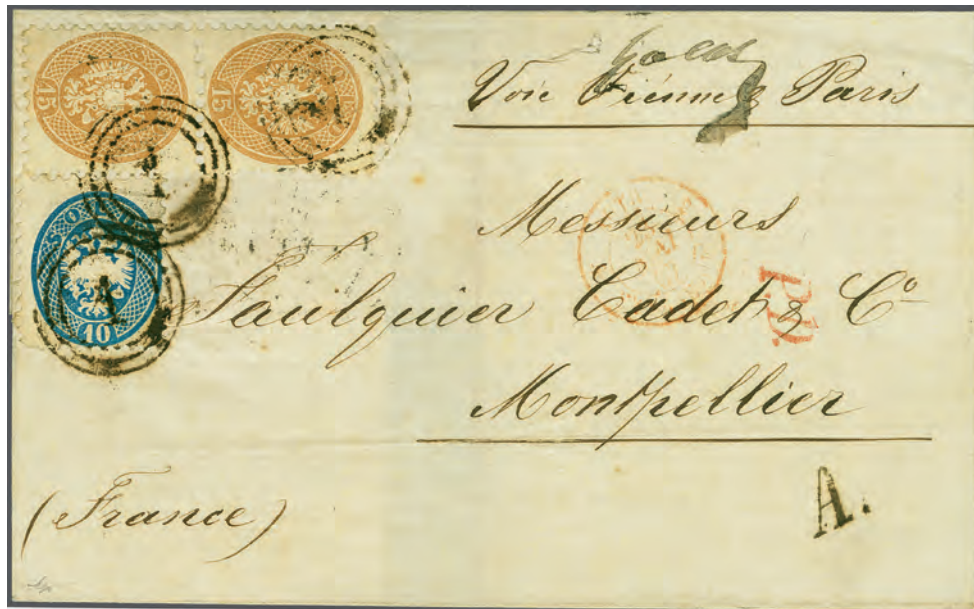 15
15
10
Voie Vienne & Paris
Messieurs
Faulquier Cadet & Cº
Montpellier
(France)
P.D.
A.